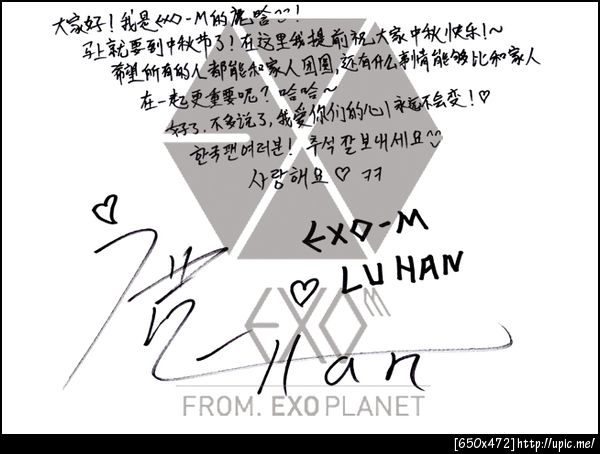 大家好！我是EXO-M的鹿晗~!
马上就要到中秋节了！在这里我提前祝大家中秋快乐！~
希望所有的人都能和家人团圆，还有什么事情能够比和家人
在一起更重要呢？哈哈~
好了，不多说了，我爱你们的心永远不会变！♡
한국팬여러분! 추석 잘보내세요^^
사랑해요♡ ㅋㅋ
EXO-M
LUHAN
EXO M
Han
FROM. EXOPLANET
[650x472]http://upic.me/